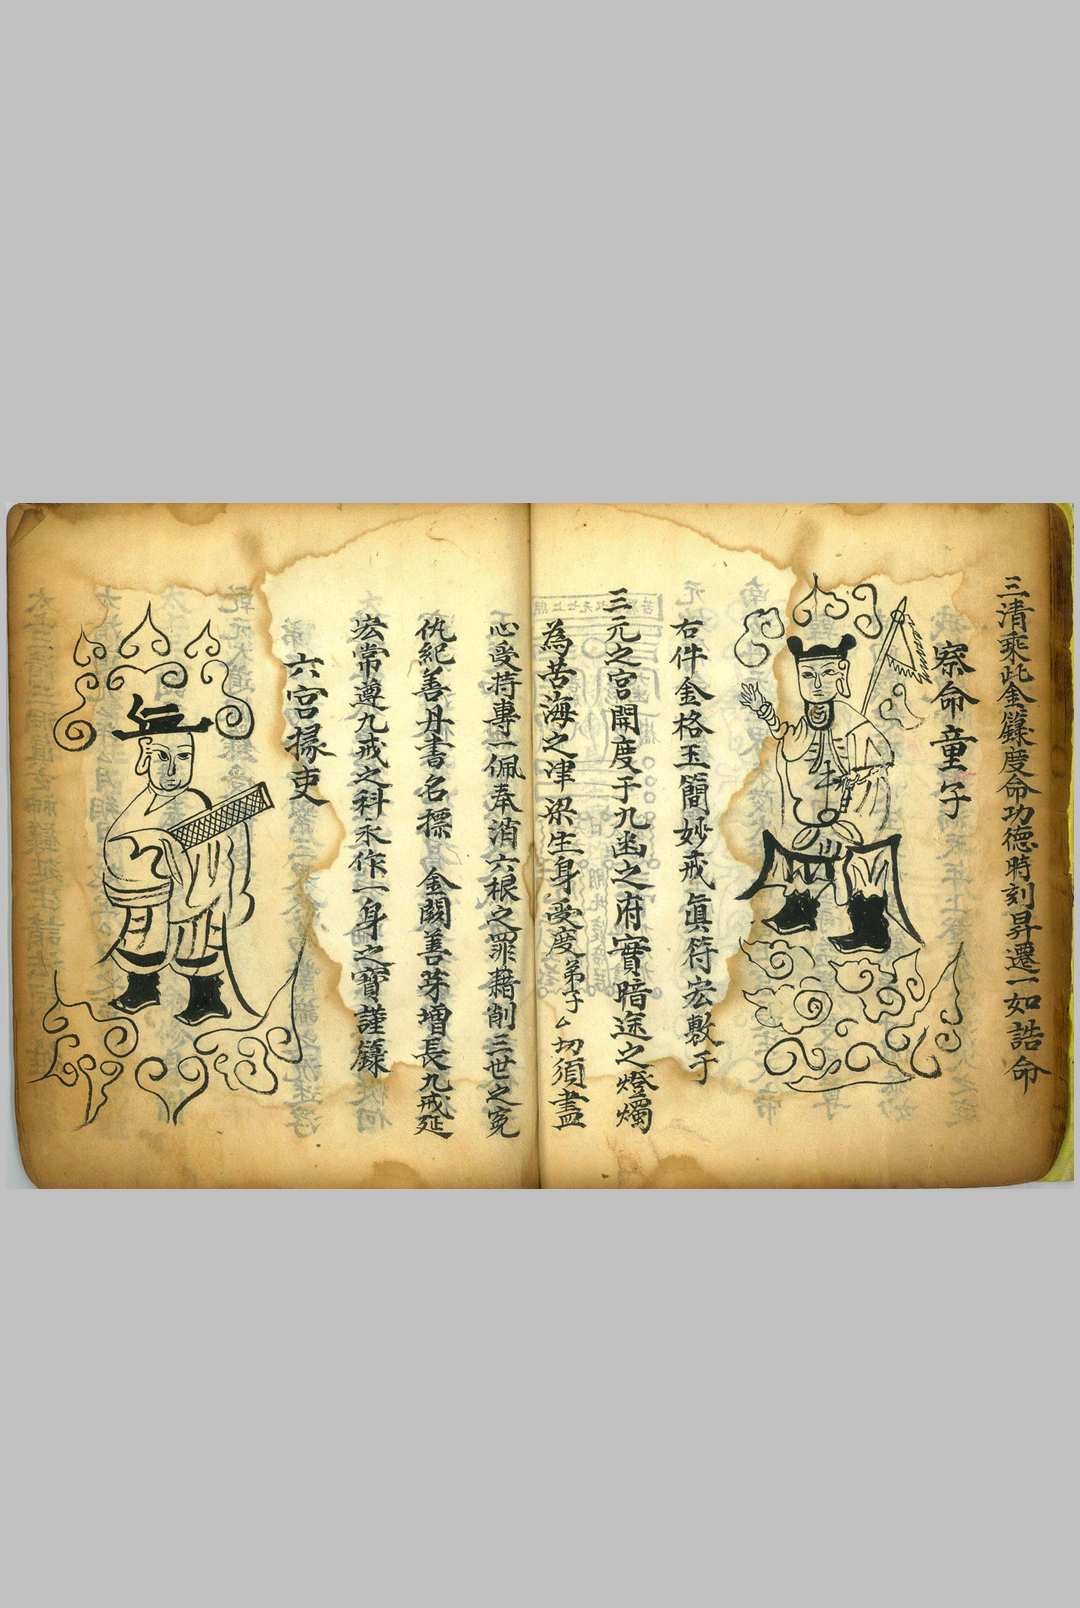 三清乘此金籙度命功德時刻昇遷一如誥命
寮命童子
右件金格玉簡妙戒眞符宏敷于
三元之宮開度于九幽之府實暗途之燈燭
為苦海之津梁生身受度弟子厶切須盡
心受持專一佩奉消六根之罪藉削三世之冤
仇紀善丹書名標金闕善芽增長九戒延
宏常遵九戒之科永作一身之寶謹籙
六宮掾吏